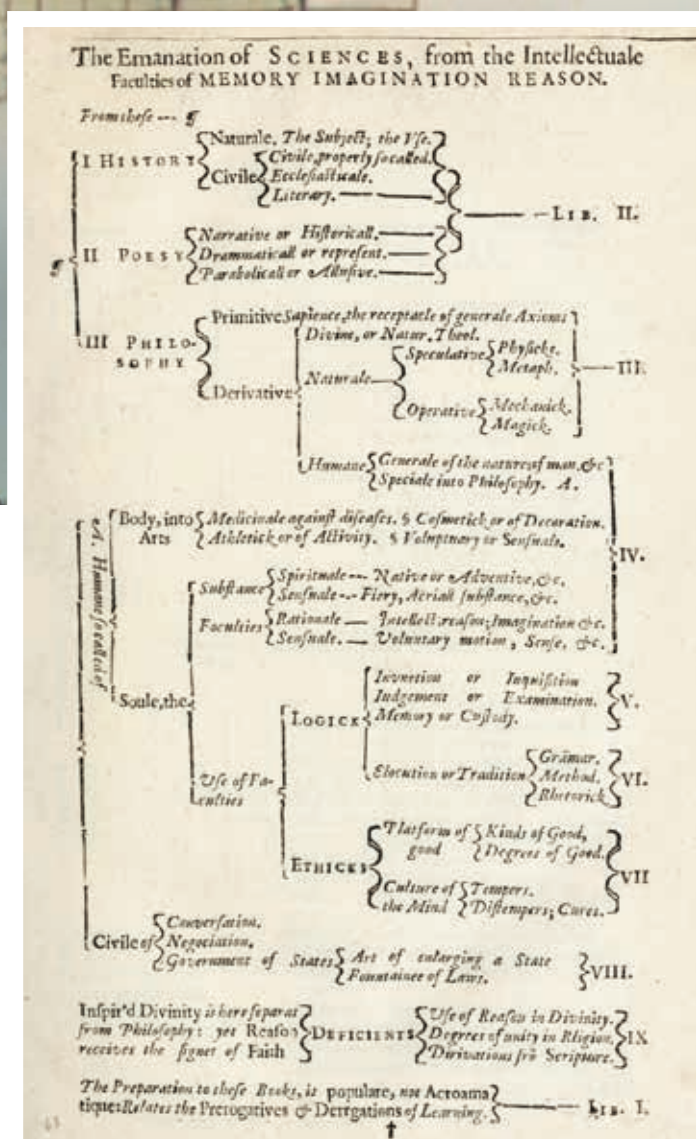 The Emanation of SCIENCES, from the Intellectuale
Faculties of MEMORY IMAGINATION REASON.
From these --- ¶
I HISTORY
Naturale. The Subject; the Vse.
Civile
Civile, properly so called.
Ecclesiasticale.
Literary.
II POESY
Narrative or Historicall.
Drammaticall or represent.
Parabolicall or Allusive.
LIB. II.
III PHILO-
SOPHY
Primitive Sapience, the receptacle of generale Axioms
Derivative
Divine, or Natur. Theol.
Naturale
Speculative
Physicke.
Metaph.
Operative
Mechanick.
Magick.
III.
Humane
Generale of the nature of man, &c
Speciale into Philosophy. A.
A. Humane
Body, into
Arts
Medicinale against diseases. § Cosmetick or of Decoration.
Athletick or of Activity. § Voluptuary or Sensuale.
Soule, the
Substance
Spirituale -- Native or Adventive, &c.
Sensuale -- Fiery, Aeriall substance, &c.
Faculties
Rationale — Intellect: reason; Imagination &c.
Sensuale. — Voluntary motion, Sense, &c.
IV.
Use of Fa-
culties
LOGICK
Invention or Inquisition
Judgement or Examination.
Memory or Custody.
V.
Elocution or Tradition
Grāmar.
Method.
Rhetorick
VI.
ETHICKS
Platform of
good
Kinds of Good,
Degrees of Good.
Culture of
the Mind
Tempers.
Distempers; Cures.
VII
Civile of
Conversation.
Negociation.
Government of States
Art of enlarging a State
Fountaine of Laws.
VIII.
Inspir'd Divinity is here separat
from Philosophy: yet Reason
receives the signet of Faith
DEFICIENTS
Use of Reason in Divinity.
Degrees of unity in Rligion.
Dirivations frō Scripture.
IX
The Preparation to these Books, is populare, not Acroama
tique: Relates the Prerogatives & Derrgations of Learning.
LIB. I.
†